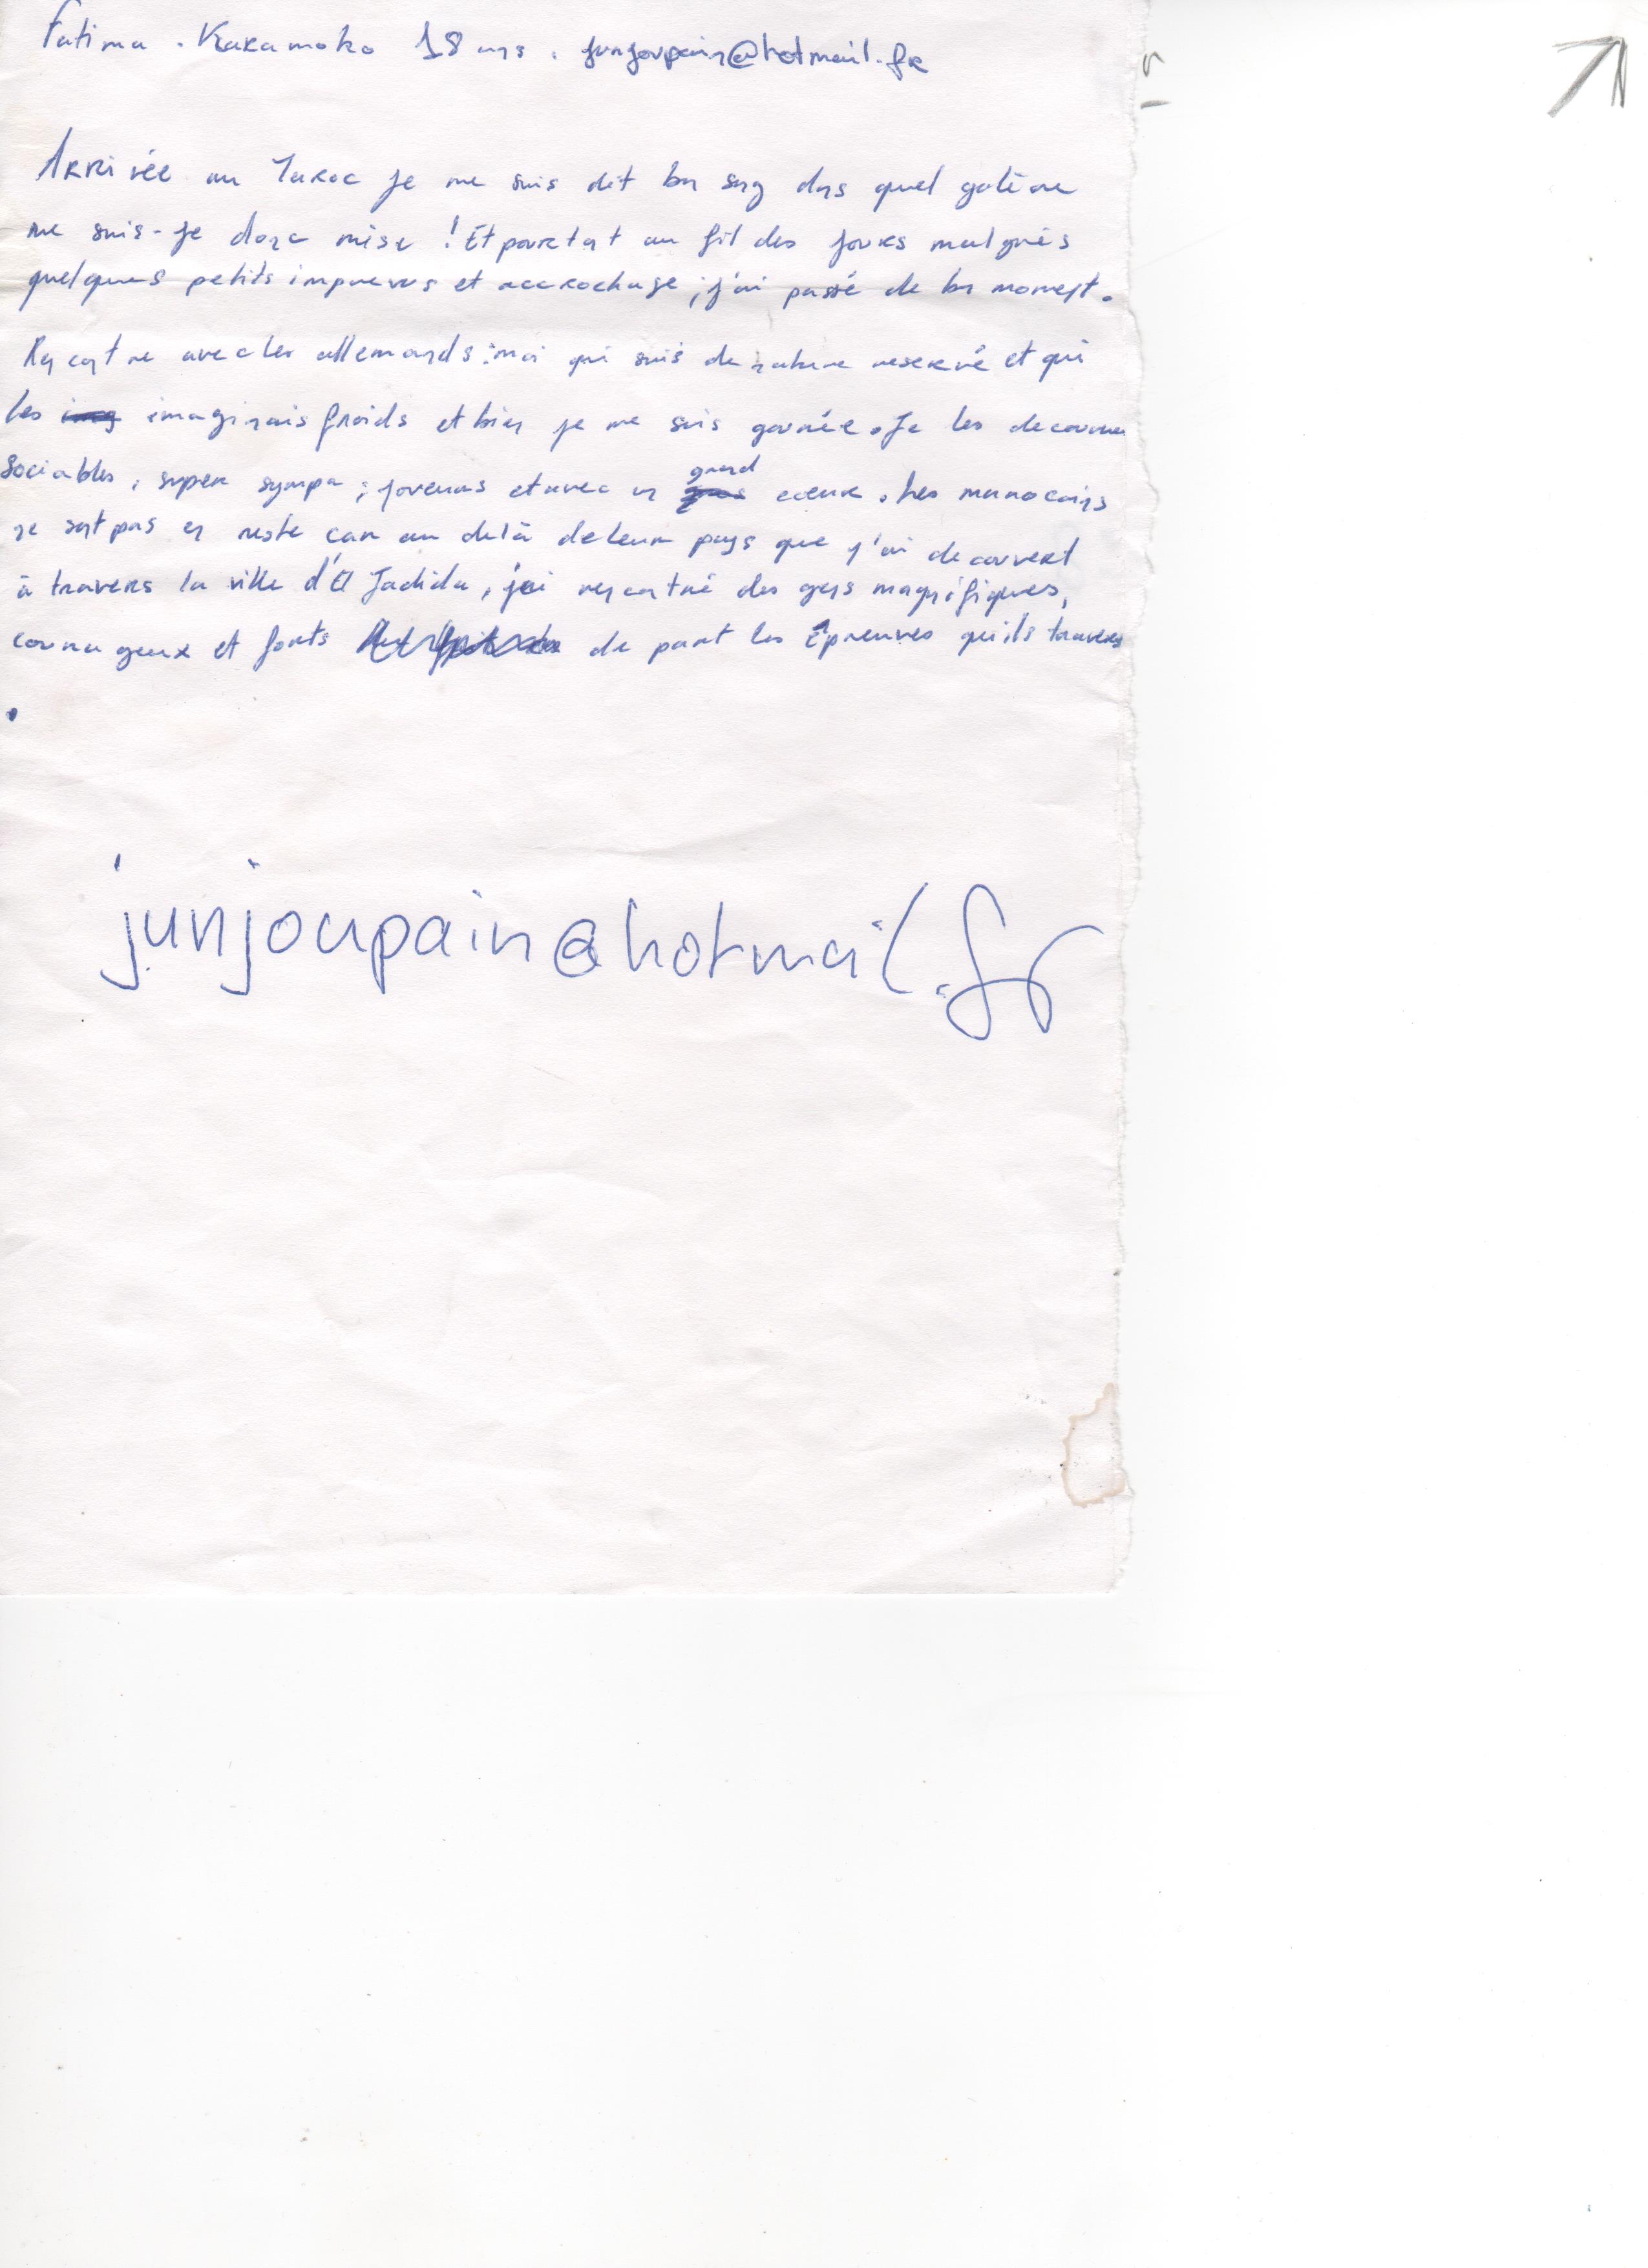 Fatima . Karamoko 18 ans . junjoupain@hotmail.fr
Arrivée au Maroc je me suis dit bon sang dans quel galère
me suis-je donc mise ! Et pourtant au fil des jours malgrés
quelques petits imprevus et accrochage, j'ai passé de bon moment.
Rencontre avec les allemands : moi qui suis de nature reservé et qui
les imaginais froids et bien je me suis gourée. Je les decouvre
sociables, super sympa, joveuas et avec un grand coeur. Les marocains
ne sont pas en reste car au delà de leur pays que j'ai decouvert
à travers la ville d'El Jadida, j'ai rencontré des gens magnifiques,
courageux et forts de part les épreuves qu'ils travers
.
junjoupain@hotmail.fr